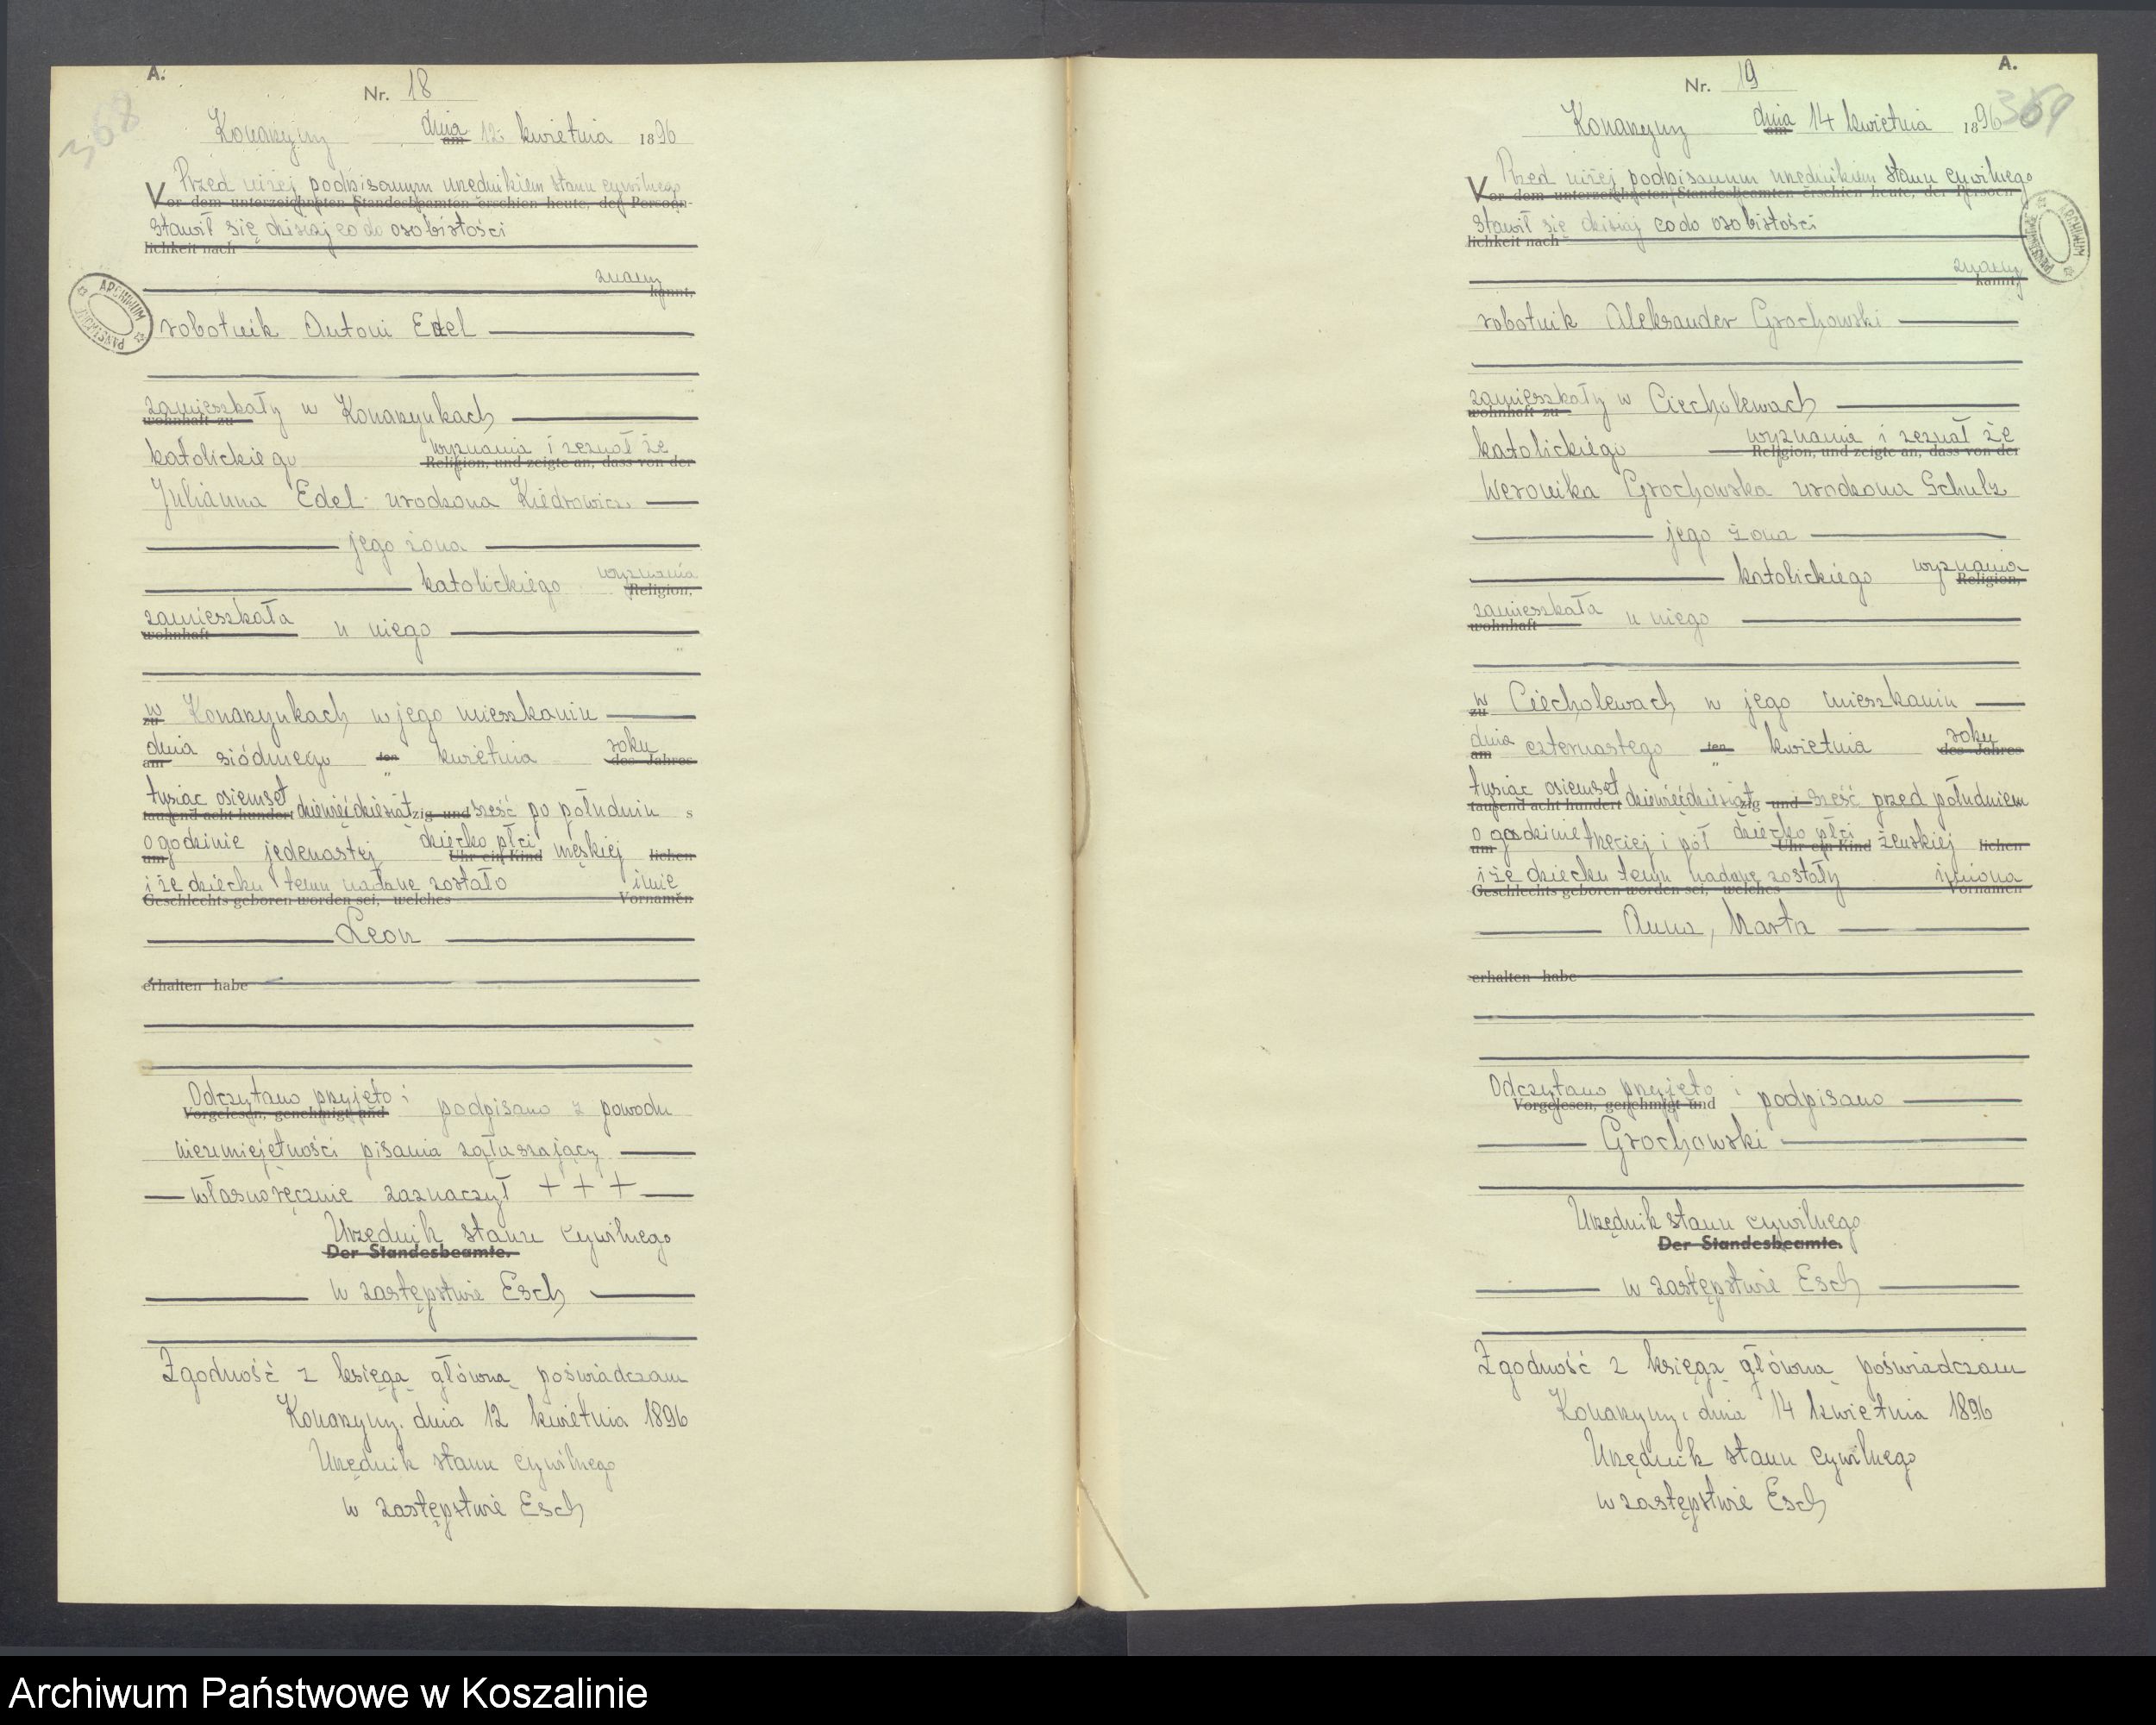 A.
Nr. 18
368
Konarzyny dnia am 12. kwietnia 1896
Przed niżej podpisanym urzędnikiem stanu cywilnego
Vor dem unterzeichneten Standesbeamten erschien heute, der Persön-
stawił się dzisiaj co do osobistości
lichkeit nach
znany
kannt,
robotnik Antoni Edel
zamieszkały w Konarzynkach
wohnhaft zu
katolickiego wyznania i zeznał że
Religion, und zeigte an, dass von der
Julianna Edel urodzona Kiedrowicz
jego żona
katolickiego wyznania
Religion,
zamieszkała u niego
wohnhaft
w Konarzynkach w jego mieszkaniu
zu
dnia siódmego ten kwietnia roku
am des Jahres
tysiąc osiemset dziewięćdziesiąt zig und sześć po południu s
tausend acht hundert
o godzinie jedenastej dziecko płci męskiej lichen
um Uhr ein Kind
i że dziecku temu nadane zostało imię
Geschlechts geboren worden sei, welches Vornamen
Leon
erhalten habe
Odczytano przyjęto i podpisano z powodu
Vorgelesen, genehmigt und
nieumiejętności pisania zgłaszający
własnoręcznie zaznaczył + + +
Urzędnik stanu cywilnego
Der Standesbeamte.
w zastępstwie Esch
Zgodność z księgą główną poświadczam
Konarzyny, dnia 12 kwietnia 1896
Urzędnik stanu cywilnego
w zastępstwie Esch
ARCHIWUM PAŃSTWOWE
A.
Nr. 19
369
Konarzyny dnia am 14 kwietnia 1896
Przed niżej podpisanym urzędnikiem stanu cywilnego
Vor dem unterzeichneten Standesbeamten erschien heute, der Persoen
stawił się dzisiaj co do osobistości
lichkeit nach
znany
kannt,
robotnik Aleksander Grochowski
zamieszkały w Ciecholewach
wohnhaft zu
katolickiego wyznania i zeznał że
Religion, und zeigte an, dass von der
Weronika Grochowska urodzona Schulz
jego żona
katolickiego wyznania
Religion,
zamieszkała u niego
wohnhaft
w Ciecholewach w jego mieszkaniu
zu
dnia czternastego ten kwietnia roku
am des Jahres
tysiąc osiemset dziewięćdziesiąt zig und sześć przed południem
tausend acht hundert
o godzinie trzeciej i pół dziecko płci żeńskiej lichen
um Uhr ein Kind
i że dziecku temu nadane zostały imiona
Geschlechts geboren worden sei, welches Vornamen
Anna, Marta
erhalten habe
Odczytano przyjęto i podpisano
Vorgelesen, genehmigt und
Grochowski
Urzędnik stanu cywilnego
Der Standesbeamte.
w zastępstwie Esch
Zgodność z księgą główną poświadczam
Konarzyny, dnia 14 kwietnia 1896
Urzędnik stanu cywilnego
w zastępstwie Esch
ARCHIWUM PAŃSTWOWE
Archiwum Państwowe w Koszalinie